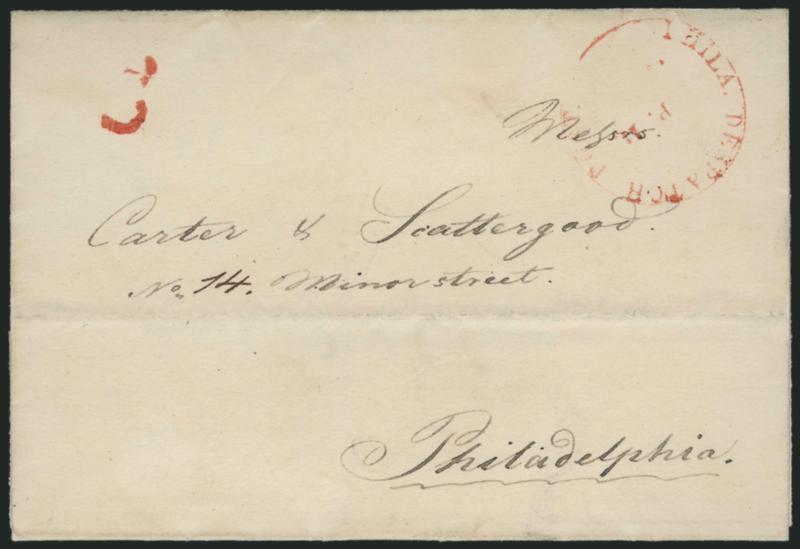 PHILA. DESPATCH PO
3
Messrs.
Carter & Scattergood.
No. 14. Minor street.
Philadelphia.